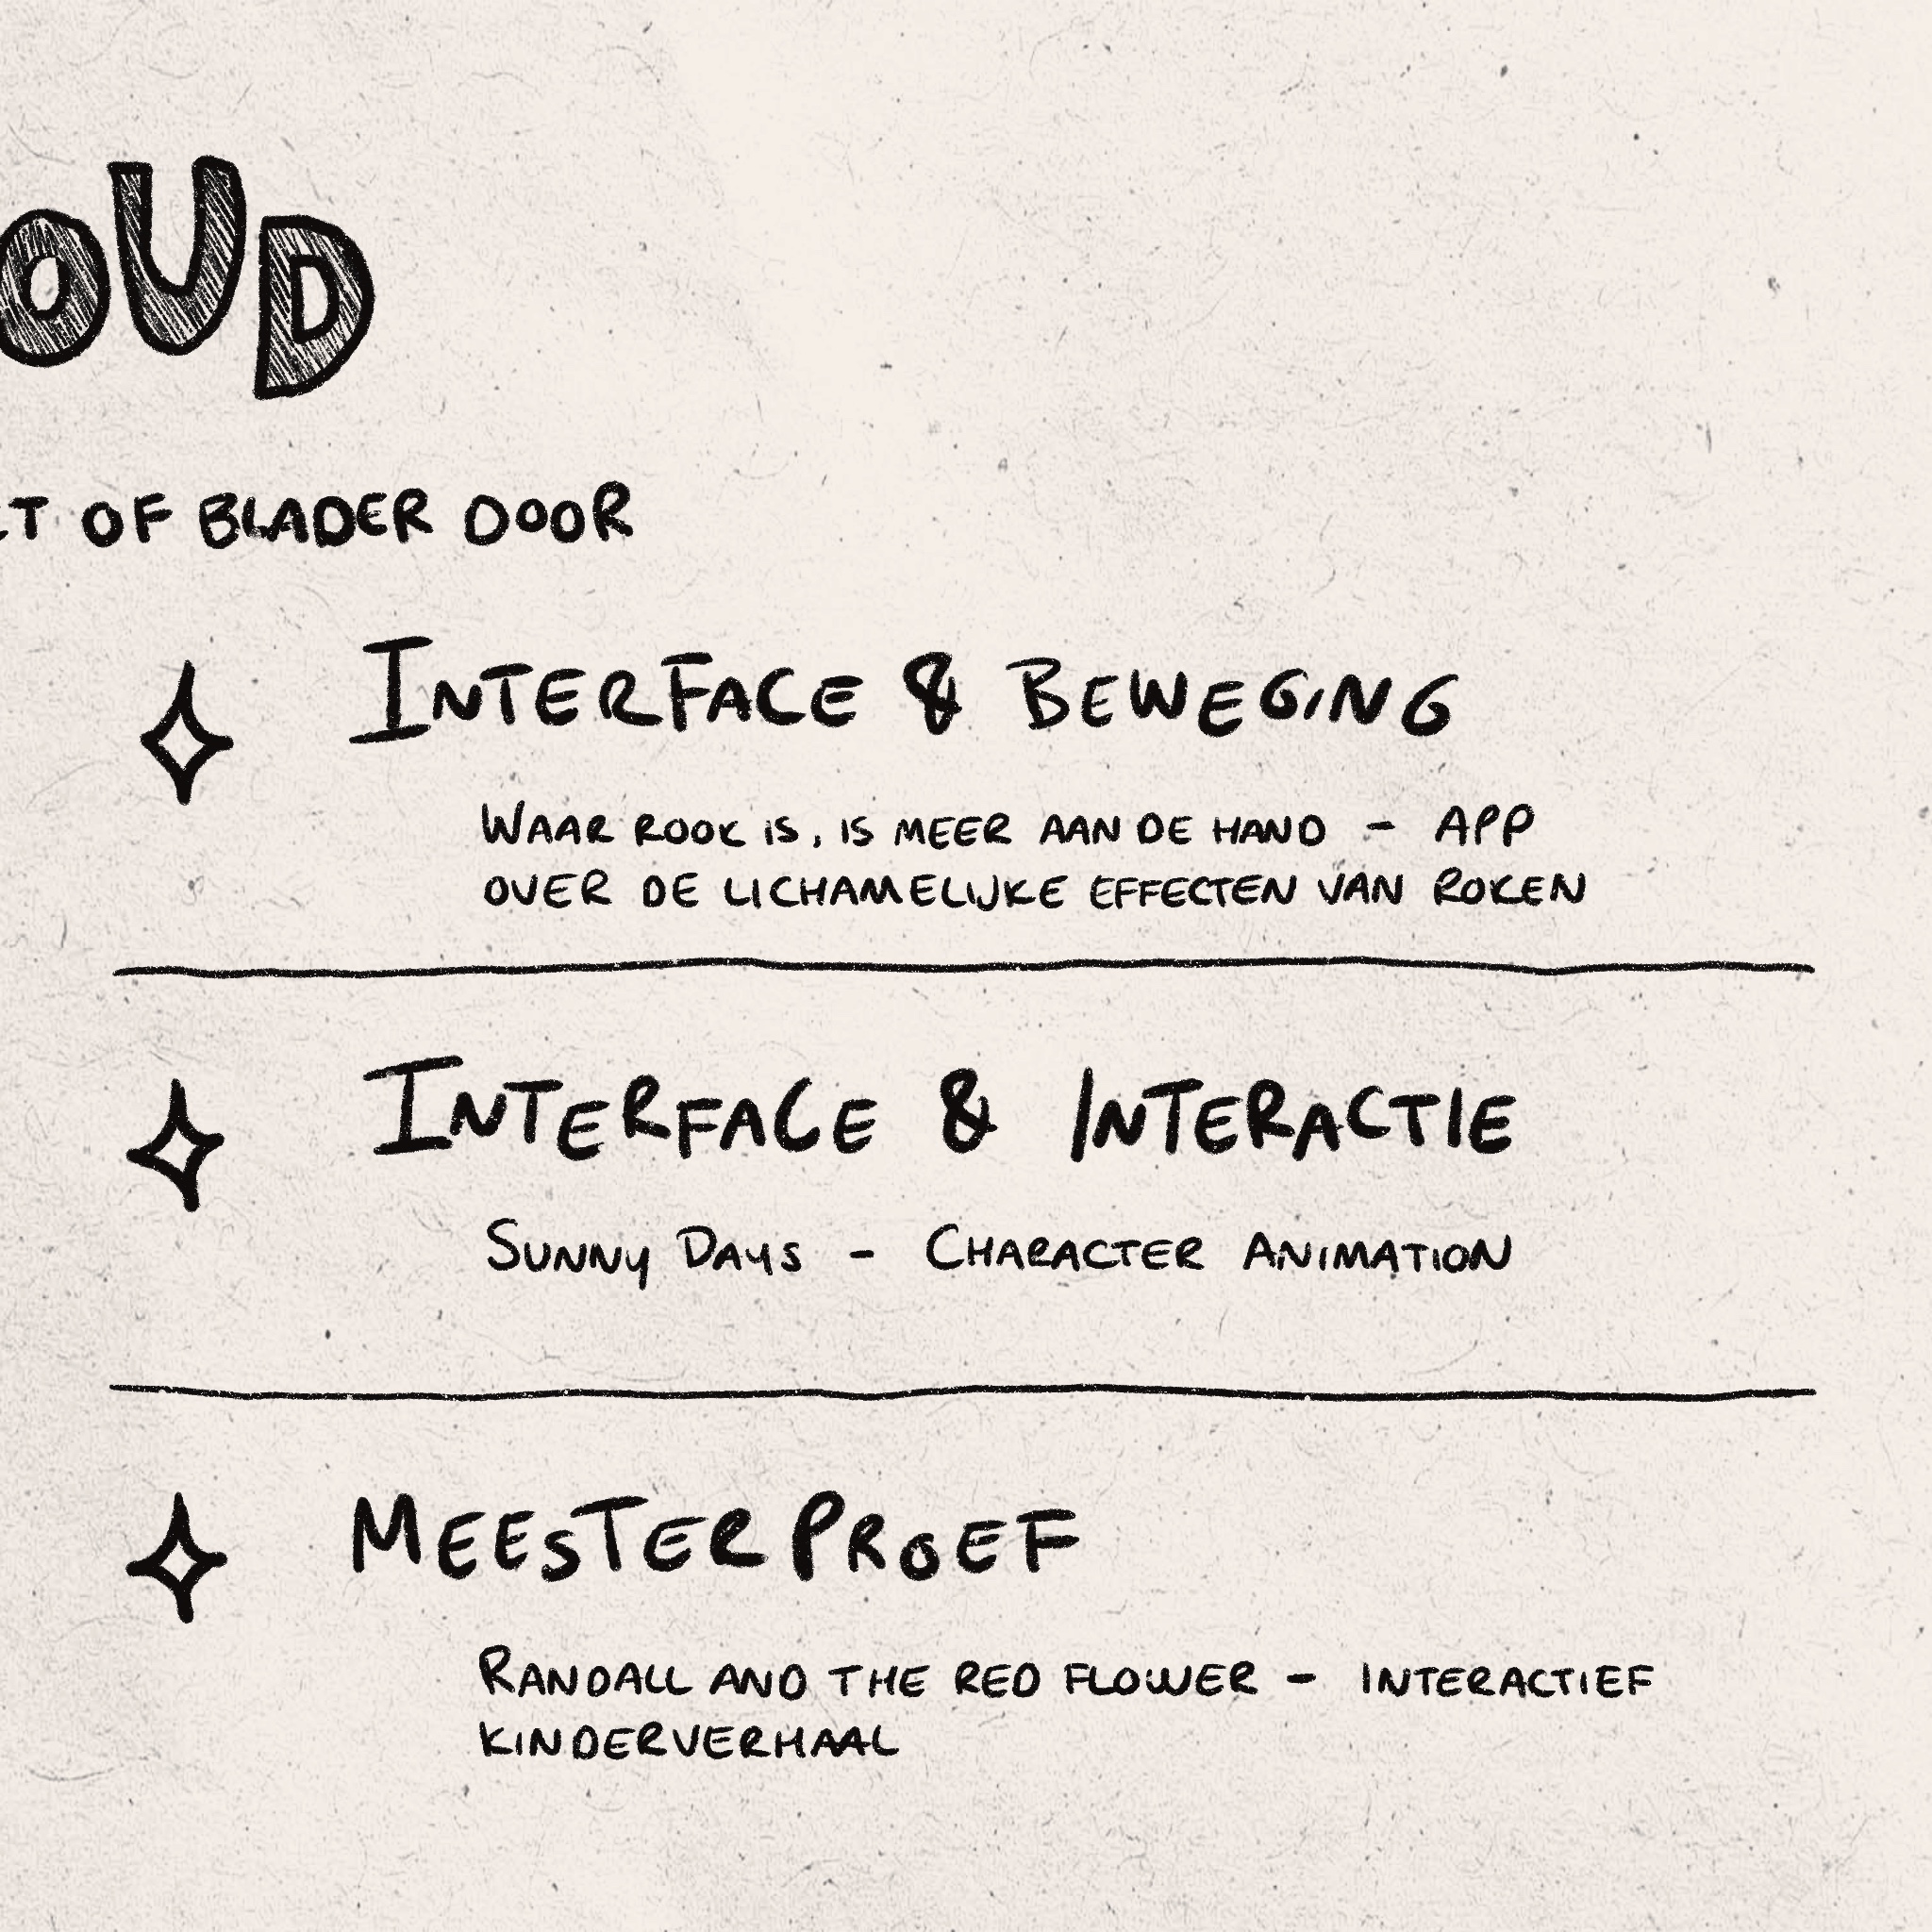 OUD
T OF BLADER DOOR
INTERFACE & BEWEGING
WAAR ROOK IS, IS MEER AAN DE HAND - APP
OVER DE LICHAMELIJKE EFFECTEN VAN ROKEN
INTERFACE & INTERACTIE
SUNNY DAYS - CHARACTER ANIMATION
MEESTERPROEF
RANDALL AND THE RED FLOWER - INTERACTIEF
KINDERVERHAAL